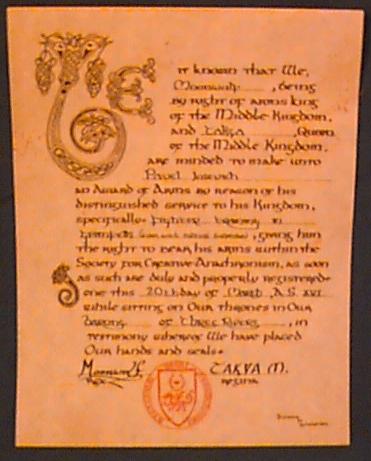 Be it known that We,
Moonwulf, being
by right of arms king
of the Middle Kingdom,
and Takya, Queen
of the Middle Kingdom,
are minded to make unto
Pavel Iosevich
an Award of Arms by reason of his
distinguished service to his Kingdom,
specifically: in
, giving him
the right to bear his arms within the
Society for Creative Anachronism, as soon
as such are duly and properly registered.
Done this 20th day of March A.S. XVI
while sitting on Our thrones in Our
Barony of Three Rivers, in
testimony whereof We have placed
Our hands and seals.
Moonwulf TAKYA M.
Rex Regina